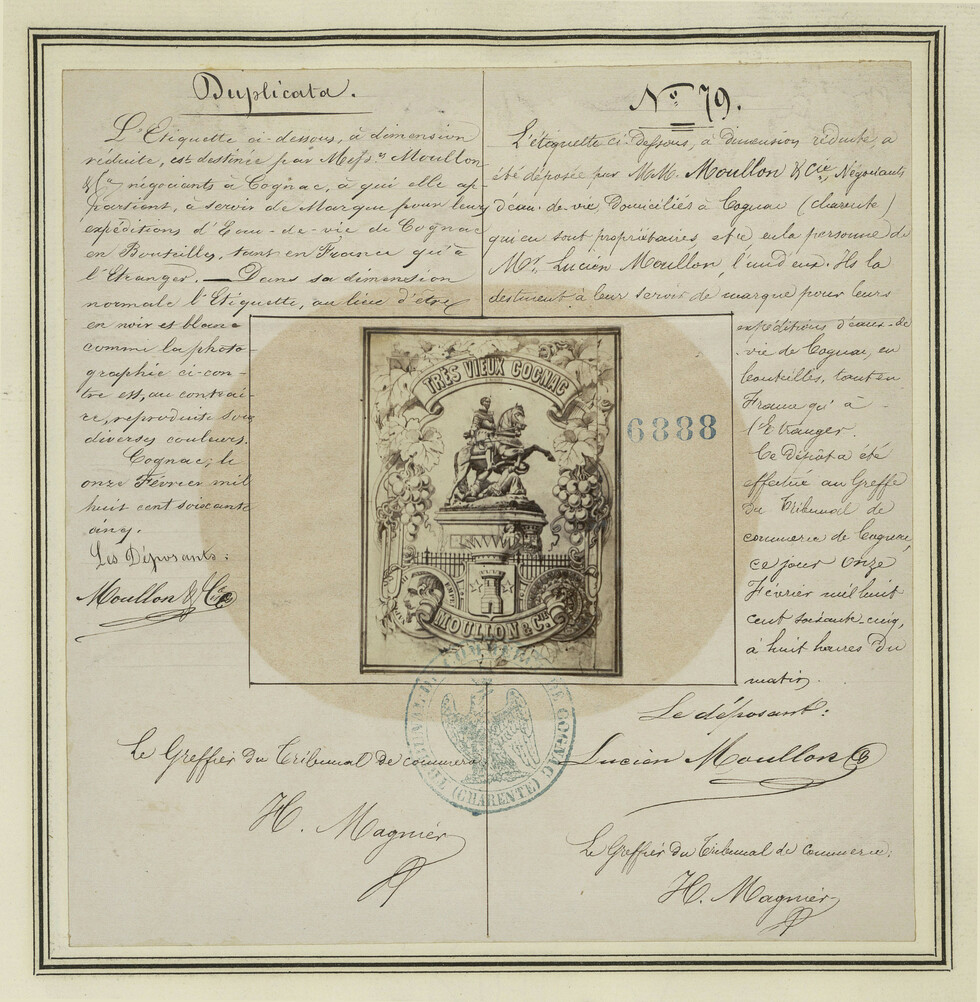 Duplicata.
L'Etiquette ci-dessous, à dimension
réduite, est destinée par Mess.rs Moullon
& C.ie négociants à Cognac, à qui elle ap-
partient, à servir de Marque pour leurs
expéditions d'Eau-de-vie de Cognac
en Bouteilles, tant en France qu'à
l'Etranger. — Dans sa dimension
normale l'Etiquette, au lieu d'être
en noir et blanc
comme la photo-
graphie ci-con-
tre est, au contrai-
re, reproduite sous
diverses couleurs.
Cognac, le
onze Février mil
huit cent soixante
cinq.
Les Déposants:
Moullon & Cie
Le Greffier du Tribunal de commerce
H. Magnier
No 79.
L'étiquette ci-dessous, à dimension réduite, a
été déposée par M.M. Moullon & Cie, Négociants
d'eau-de-vie, Domiciliés à Cognac (charente)
qui en sont propriétaires, et ce, en la personne de
Mr. Lucien Moullon, l'un d'eux. Ils la
destinent à leur servir de marque pour leurs
expéditions d'eaux-de
-vie de Cognac, en
bouteilles, tant en
France qu'à
l'Etranger.
Ce Dépôt a été
effectué au Greffe
du Tribunal de
commerce de Cognac,
ce jour onze
Février mil huit
cent soixante-cinq,
à huit heures du
matin.
Le déposant:
Lucien Moullon
Le Greffier du Tribunal de commerce:
H. Magnier
TRÈS VIEUX COGNAC
MOULLON & Cie
6888
TRIBUNAL DE COMMERCE DE COGNAC
(CHARENTE)